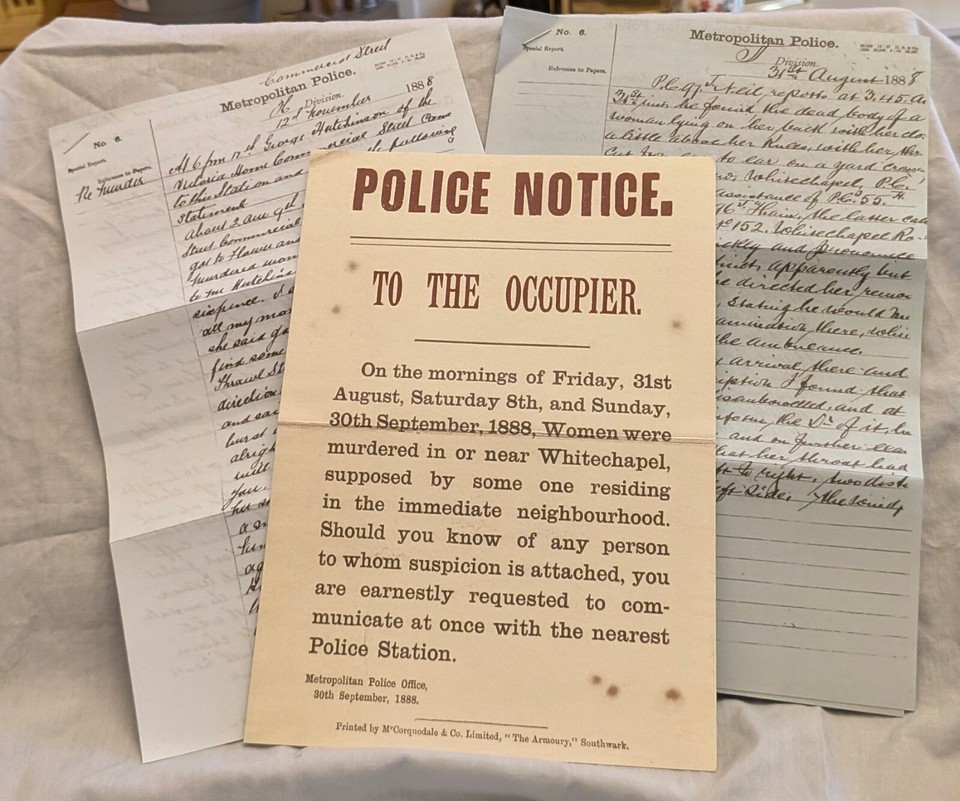 Commercial Street
Metropolitan Police.
No. 6.
Special Report.
Reference to Papers.
Re Murder
H Division.
12th November 1888
At 6 pm 12th George Hutchinson of the
Victoria Home Commercial Street Came
to this Station and
the following
Statement
About 2 am 9th
Street Commercial
got to Flower and
murdered wom
to me Hutchin
sixpence. I s
all my mo
she said go
find some
Thrawl St
direction
and
burst
alrigh
will
you
her
a
No. 6.
Special Report.
Reference to Papers.
Metropolitan Police.
J Division.
31st August 1888
P.C. 97J Neil reports at 3.45. a
31st inst he found the dead body of a
woman lying on her back with her clo
a little above her knees, with her thr
cut from ear to ear on a yard cross
Whitechapel, P.C.
assistance of P.C.s 55. H.
Thain, the latter call
152. Whitechapel Ro
and pronounce
apparently but
directed her remov
stating he would
there,
the ambulance.
arrival there and
I found that
disembowelled, and at
the Dr. of it, he
and on further exa
that her throat had
left to right, two dist
left side, the
POLICE NOTICE.
TO THE OCCUPIER.
On the mornings of Friday, 31st
August, Saturday 8th, and Sunday,
30th September, 1888, Women were
murdered in or near Whitechapel,
supposed by some one residing
in the immediate neighbourhood.
Should you know of any person
to whom suspicion is attached, you
are earnestly requested to com-
municate at once with the nearest
Police Station.
Metropolitan Police Office,
30th September, 1888.
Printed by McCorquodale & Co. Limited, "The Armoury," Southwark.